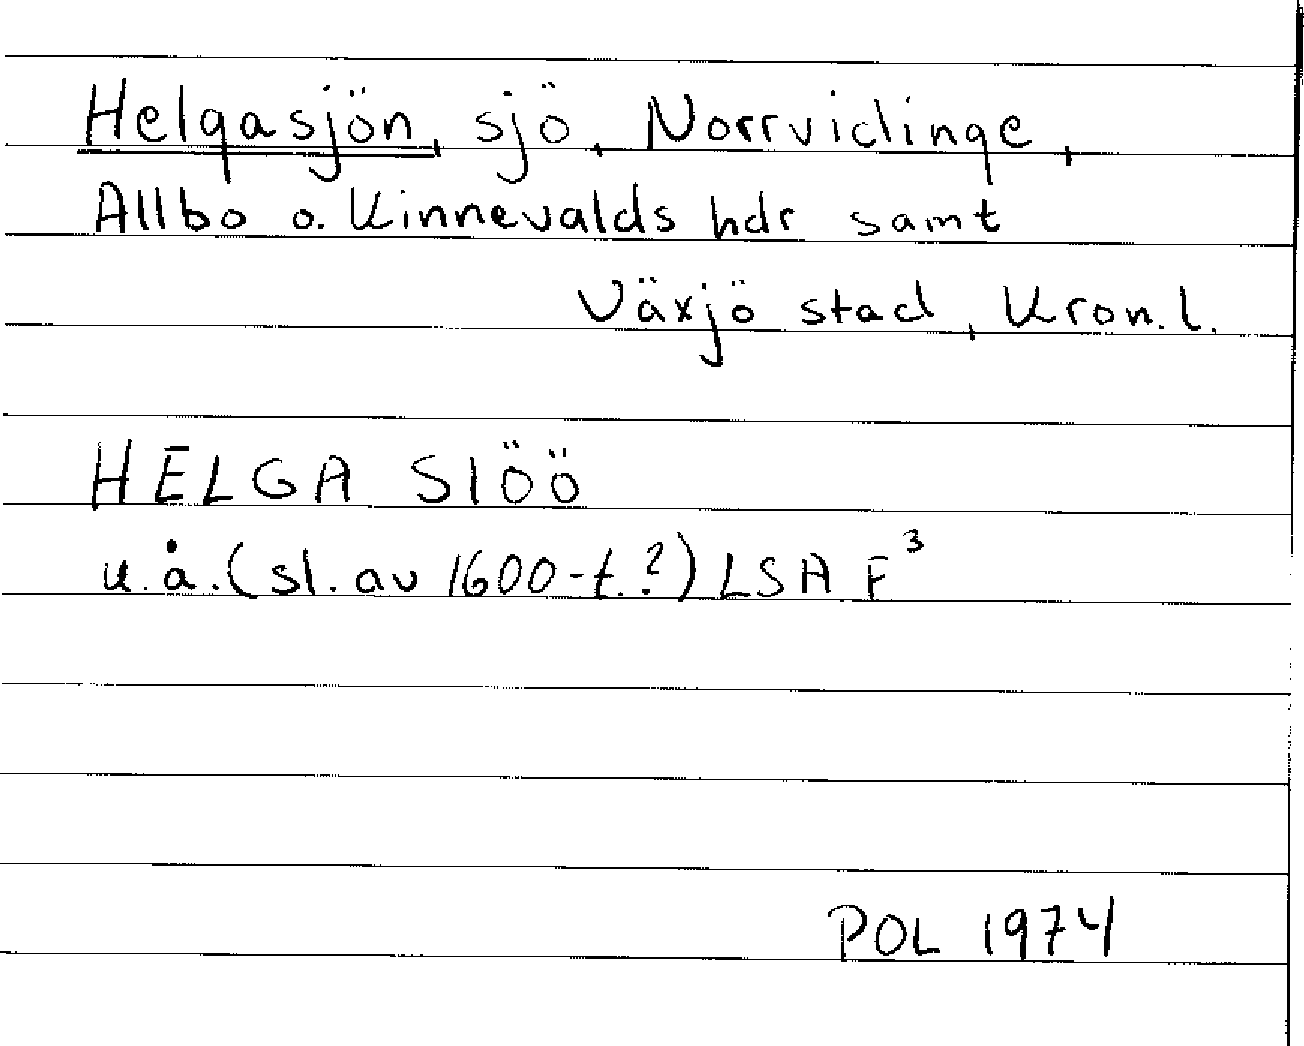 Helgasjön, sjö, Norrvidinge,
Allbo o. Kinnevalds hdr samt
Växjö stad, Kron. l.
HELGA SIÖÖ
u.å. (sl. av 1600-t.?) LSA F³
POL 1974